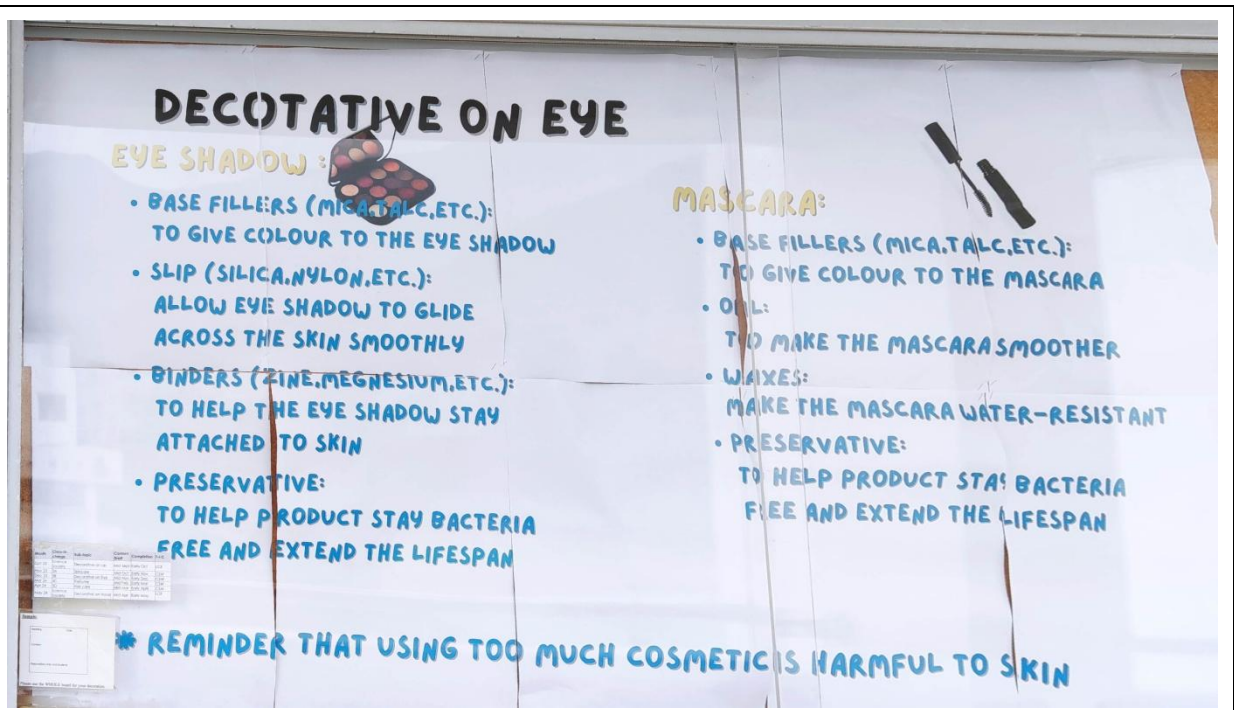 DECOTATIVE ON EYE
EYE SHADOW :
• BASE FILLERS (MICA,TALC,ETC.):
TO GIVE COLOUR TO THE EYE SHADOW
• SLIP (SILICA,NYLON,ETC.):
ALLOW EYE SHADOW TO GLIDE
ACROSS THE SKIN SMOOTHLY
• BINDERS (ZINE,MEGNESIUM,ETC.):
TO HELP THE EYE SHADOW STAY
ATTACHED TO SKIN
• PRESERVATIVE:
TO HELP PRODUCT STAY BACTERIA
FREE AND EXTEND THE LIFESPAN
MASCARA:
• BASE FILLERS (MICA,TALC,ETC.):
TO GIVE COLOUR TO THE MASCARA
• OIL:
TO MAKE THE MASCARA SMOOTHER
• WAXES:
MAKE THE MASCARA WATER-RESISTANT
• PRESERVATIVE:
TO HELP PRODUCT STAY BACTERIA
FREE AND EXTEND THE LIFESPAN
* REMINDER THAT USING TOO MUCH COSMETIC IS HARMFUL TO SKIN